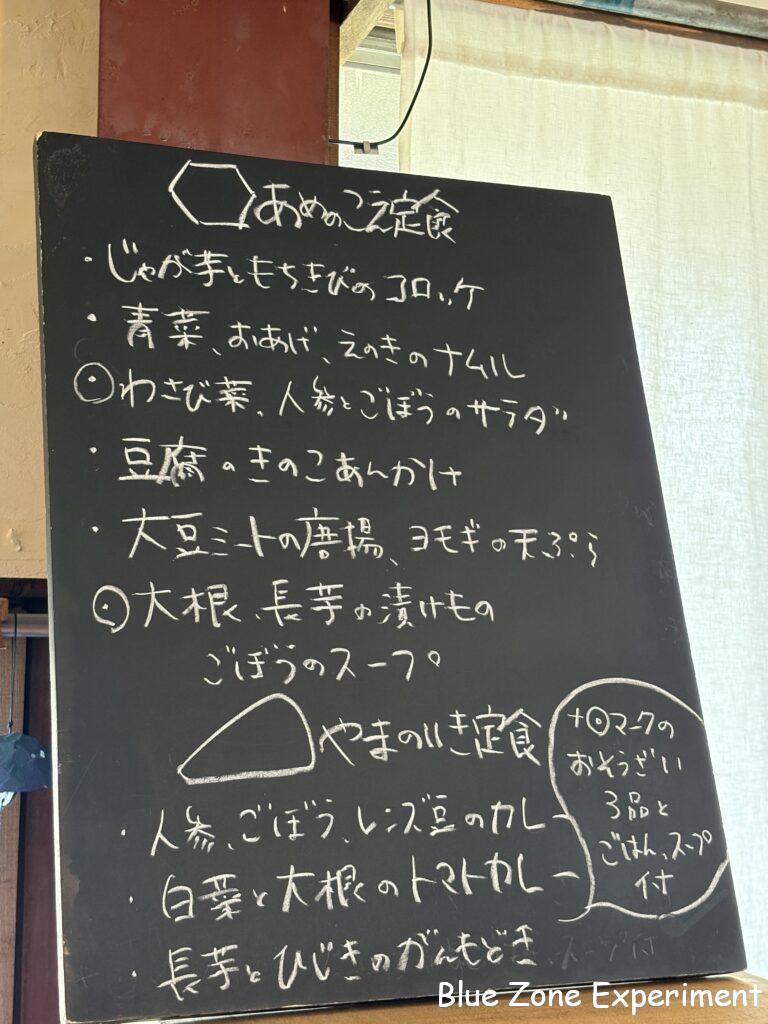 あめのこえ定食
・じゃが芋ともちきびのコロッケ
・青菜、おあげ、えのきのナムル
⊙わさび菜、人参とごぼうのサラダ
・豆腐のきのこあんかけ
・大豆ミートの唐揚、ヨモギの天ぷら
⊙大根、長芋の漬けもの
ごぼうのスープ。
やまのいき定食
・人参、ごぼう、レンズ豆のカレー
・白菜と大根のトマトカレー
・長芋とひじきのがんもどき
+⊙マークの
おそうざい
3品と
ごはん、スープ
付
Blue Zone Experiment